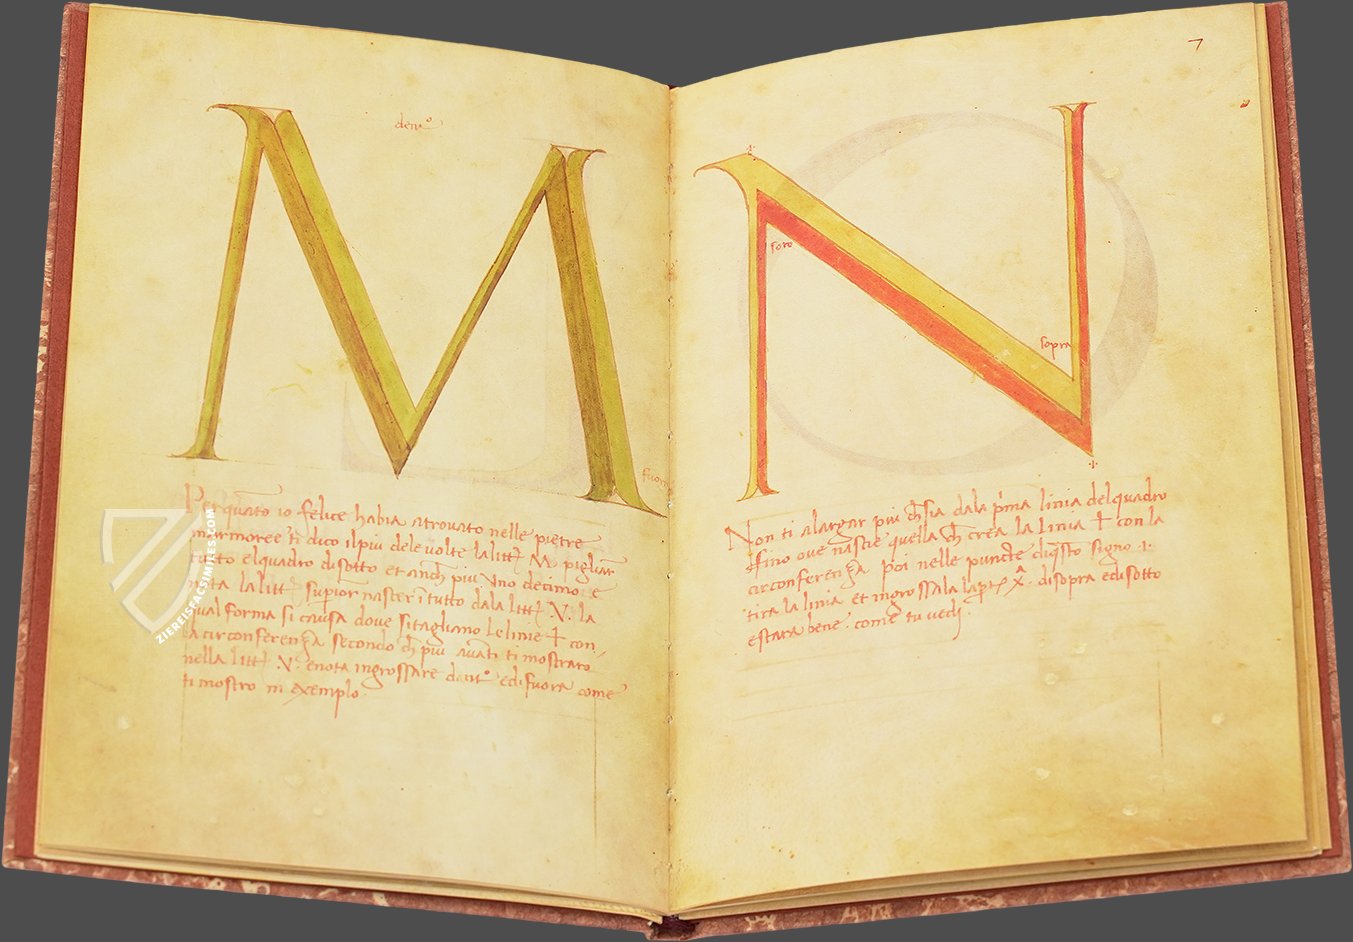 M
dent°
fuora
Per quāto io felice habia atrovato nelle pietre
marmoree ti dico il piu dele volte la litt. M. pigliar
tutto el quadro di sotto et anch piu uno decimo e
nota la litt. supior nascer ī tutto dala litt. N. la
qual forma si causa dove si tagliano le linie ☩ con
la circonferenza secondo ch piu avāti ti mostraro
nella litt. N. e nota ingrossare dent° e di fuora come
ti mostro in exemplo.
7
N
soto
sopra
Non ti alargar piu ch sia dala p'ma linia del quadro
fino ove nascie quella ch crea la linia ☩ con la
circonferenza. poi nelle puncte di questo signo .+.
tira la linia et ingrossala la X.ª di sopra e di sotto
e stara bene. come tu vedi
ZIEREISFACSIMILES.COM